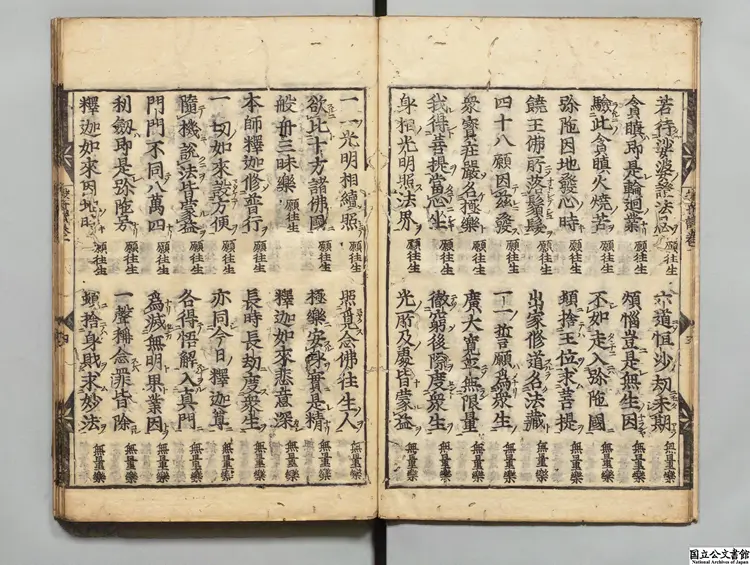 若行娑婆證法忍 願往生 六道恒沙劫未期 無量樂
貪瞋即是輪廻業 願往生 煩惱豈是無生因 無量樂
驗此貪瞋火燒苦 願往生 不如走入弥陁國 無量樂
弥陁因地發心時 願往生 頓捨王位求菩提 無量樂
饒王佛所落鬚髮 願往生 出家修道名法藏 無量樂
四十八願因茲發 願往生 一一誓願為衆生 無量樂
衆寶莊嚴名極樂 願往生 廣大寛平無限量 無量樂
我得菩提當心坐 願往生 徹窮後際度衆生 無量樂
身相光明照法界 願往生 光所及處皆蒙益 無量樂
一一光明相續照 願往生 照覓念佛往生人 無量樂
欲比十方諸佛國 願往生 極樂安身實是精 無量樂
般舟三昧樂 願往生 釋迦如來悲意深 無量樂
本師釋迦修普行 願往生 長時長劫度衆生 無量樂
一切如來設方便 願往生 亦同今日釋迦尊 無量樂
隨機說法皆蒙益 願往生 各得悟解入真門 無量樂
門門不同八萬四 願往生 為滅無明果業因 無量樂
利劒即是弥陁号 願往生 一聲稱念罪皆除 無量樂
釋迦如來因地時 願往生 頓捨身財求妙法 無量樂
国立公文書館
National Archives of Japan